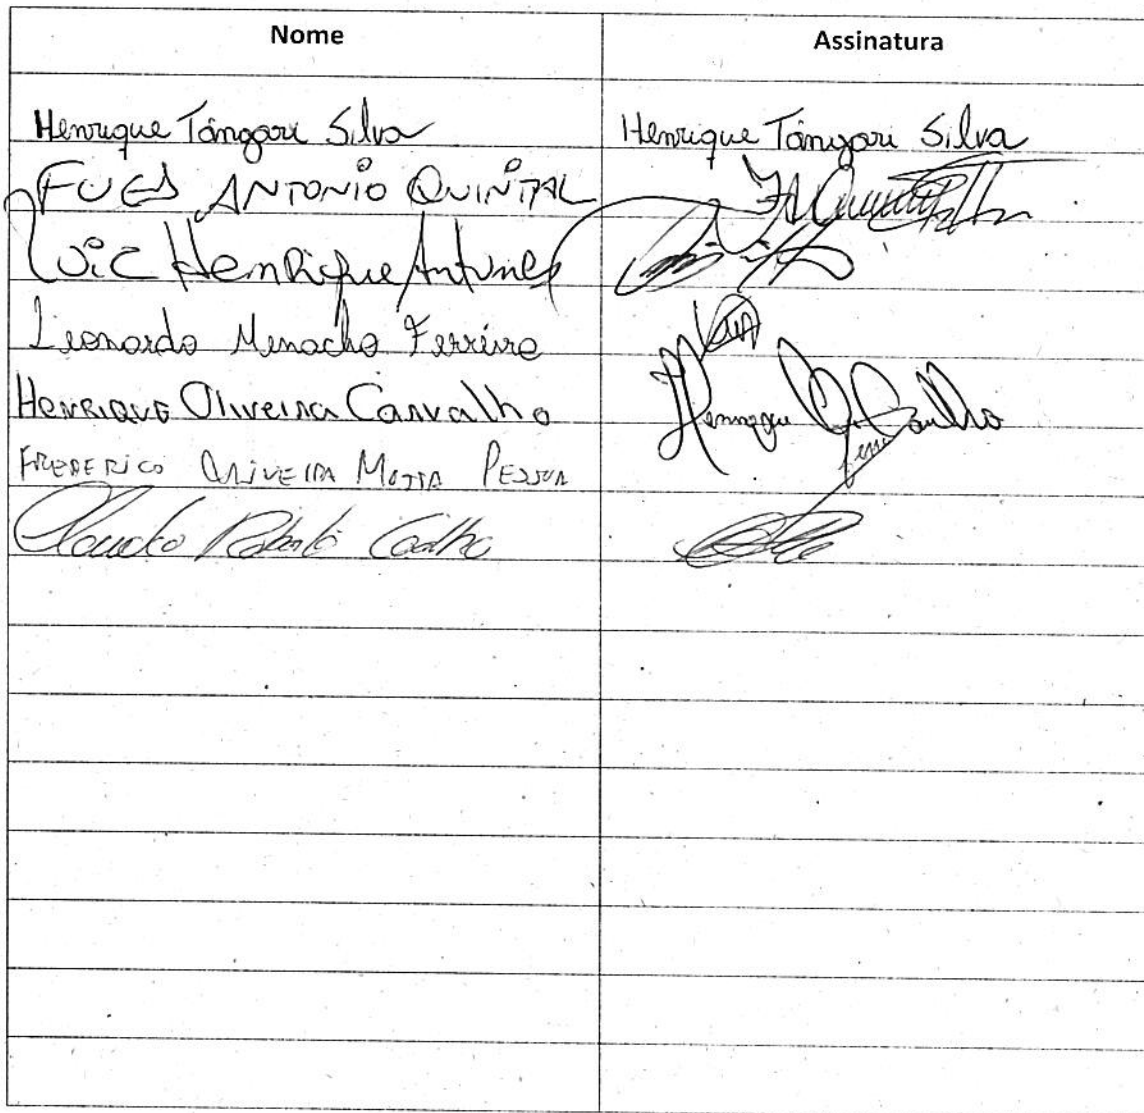 Nome Assinatura
Henrique Tângari Silva Henrique Tângari Silva
FUED ANTONIO QUINTAL
LUIZ Henrique Antunes
Leonardo Menacho Ferreira
HENRIQUE Oliveira Carvalho Henrique O. Carvalho
FREDERICO OLIVEIRA MOTTA PESSOA
Claudio Roberto Coelho